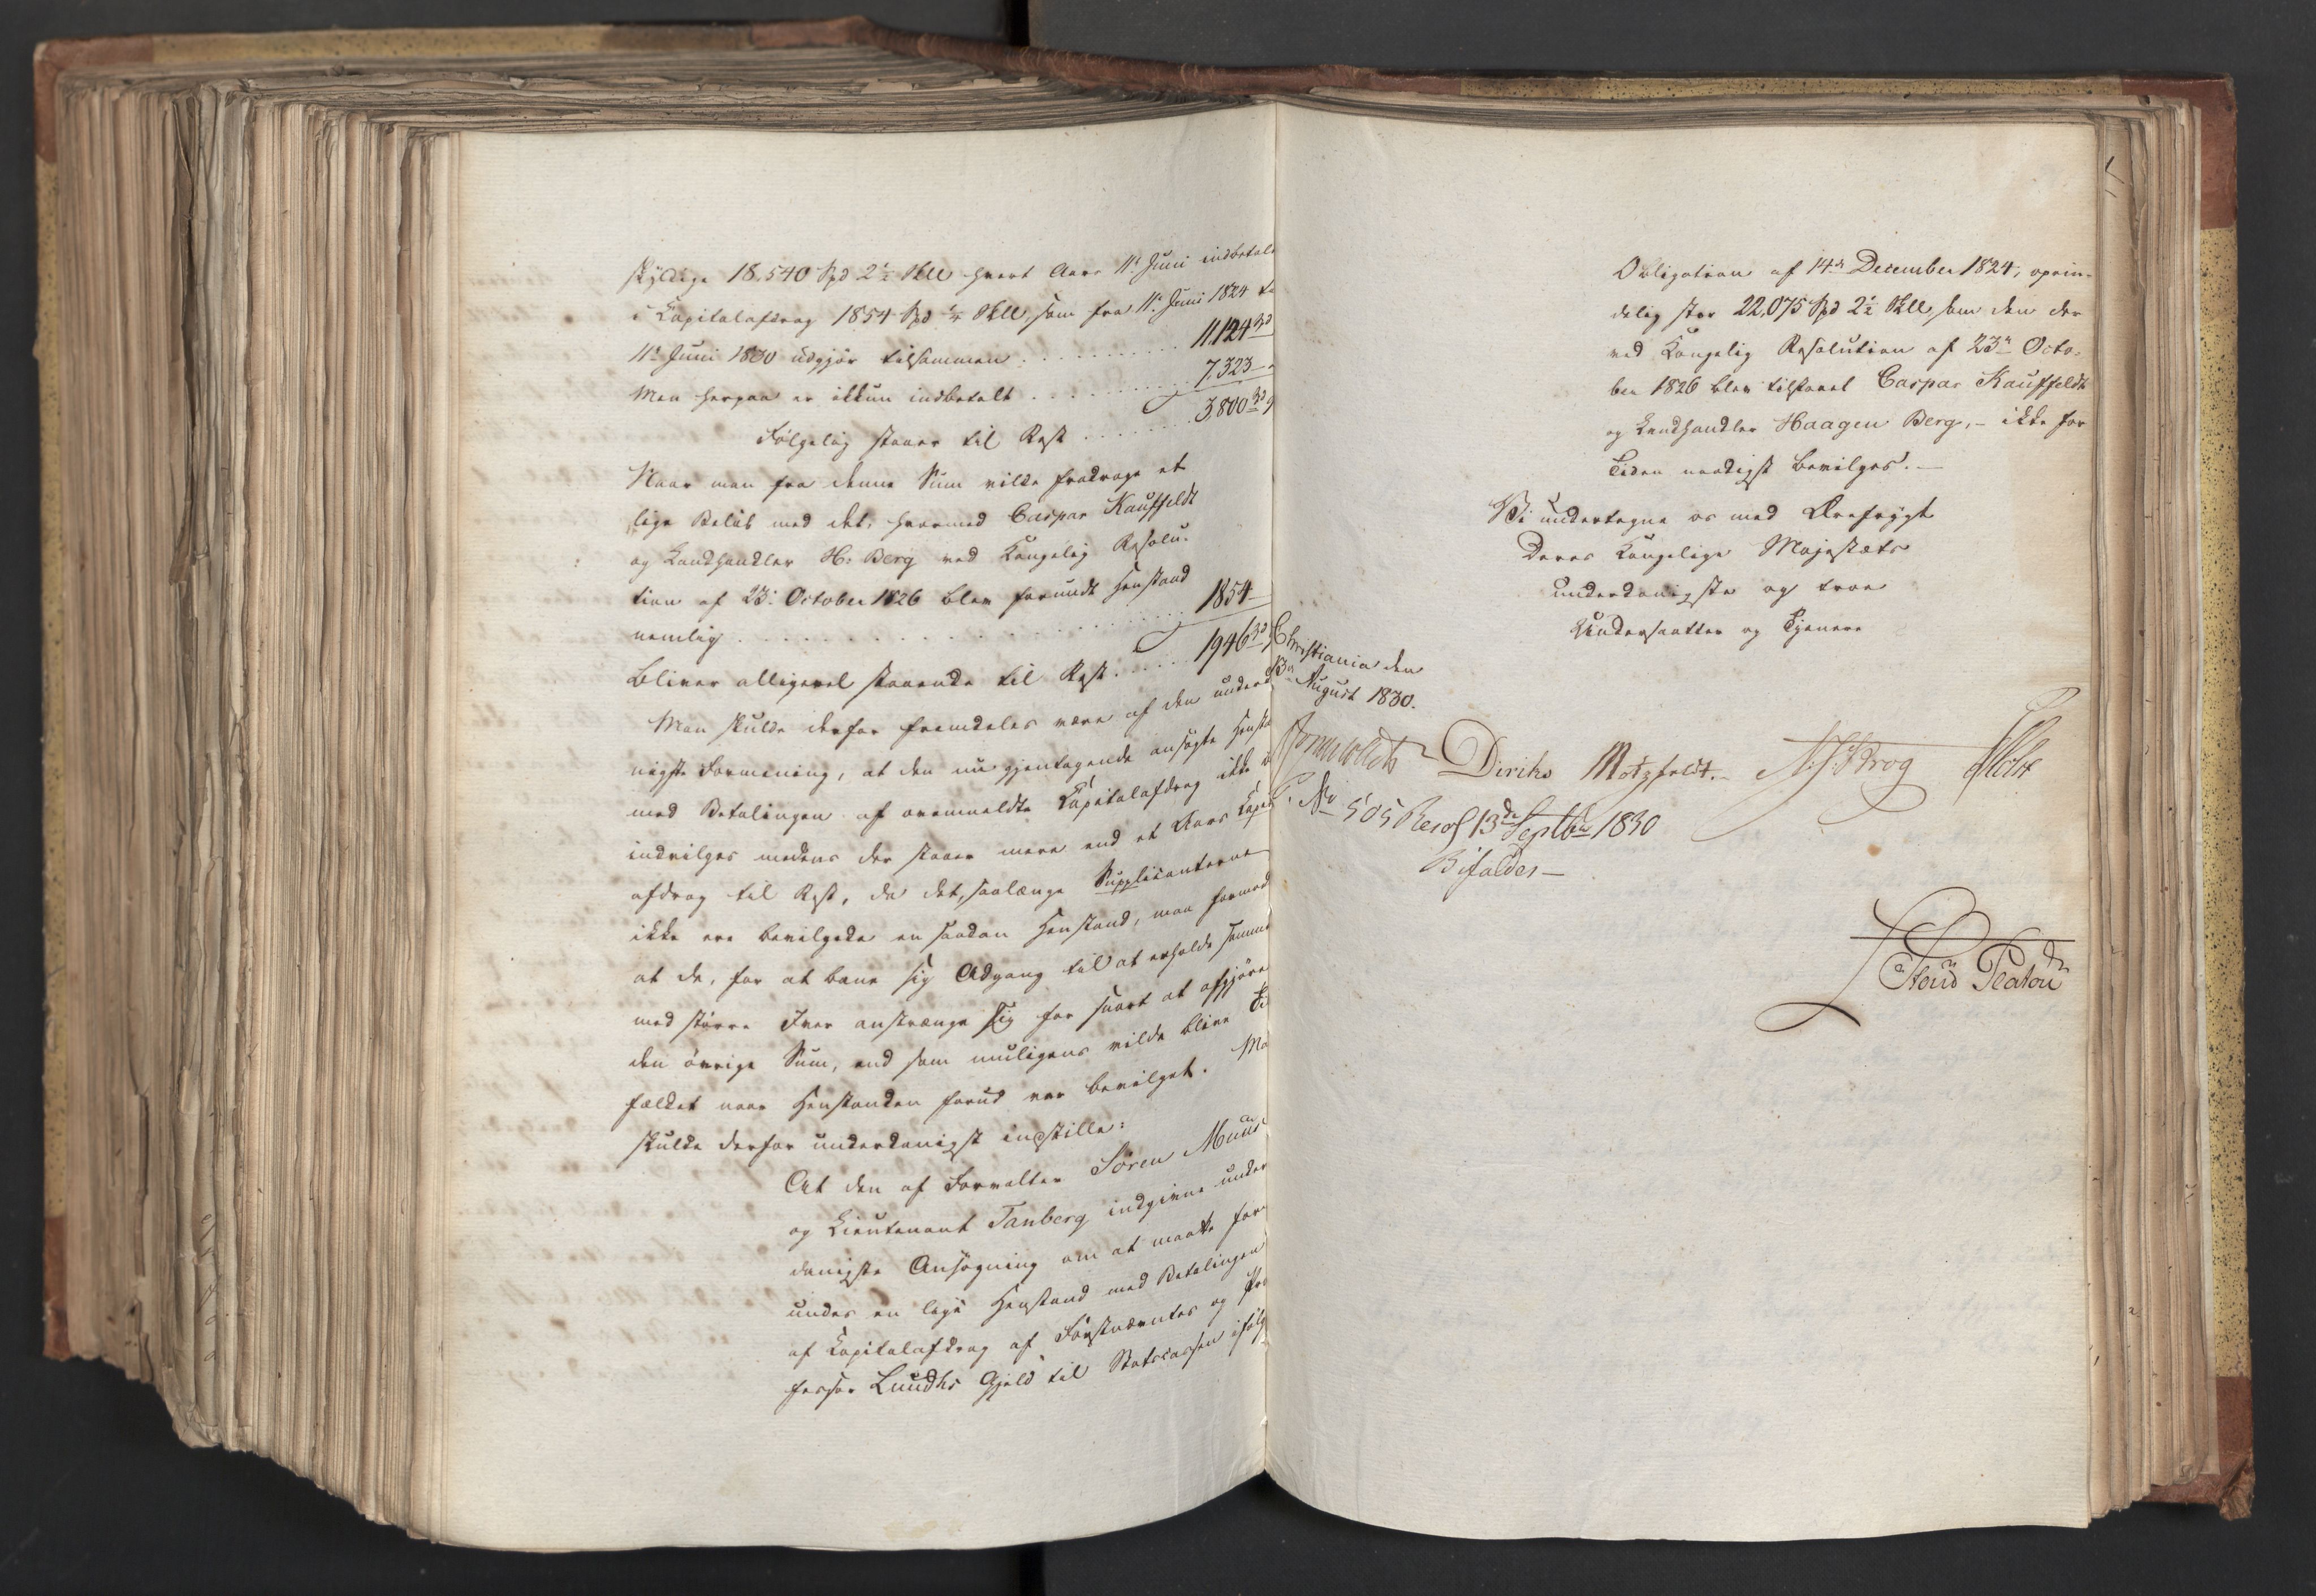 skyldige 18,540 Spd 2½ Skll hvert Aars 11te Juni indbetale
i Kapitalafdrag 1854 Spd ¼ Skll, som fra 11te Juni 1824 t
11te Juni 1830 udgjør tilsammen . . . . . . . . 11.124 Spd
Men herpaa er ikkun indbetalt . . . . . . . . 7.323 -
Følgelig staaer til Rest . . . . . . 3800 Spd
Naar man fra denne Sum vilde fradrage et
lige Beløb med det, hvormed Caspar Kauffeldt
og Landhandler H: Berg ved Kongelig Resolu-
tion af 23de October 1826 blev forundt Henstand
nemlig . . . . . . . . . . . . 1854 -
bliver alligevel staaende til Rest . . . . . 1946 Spd
Man skulde derfor fremdeles være af den underd
nigste Formening, at den nu gjentagende ansøgte Hensta
med Betalingen af ovenmeldte Kapitalafdrag ikke
indvilges medens der staaer mere end et Aars Capit
afdrag til Rest, da det, saalænge Supplicanterne
ikke ere bevilgede en saadan Henstand, maa formod
at de, for at bane sig Adgang til at erholde samme
med større Iver anstrænge sig for snart at afgjøre
den øvrige Sum, end som muligens vilde blive Til
fældet naar Henstanden forud var bevilget. Ma
skulde derfor underdanigst indstille:
At den af Forvalter Søren Muus
og Lieutenant Tanberg indgivne under
danigste Ansøgning om at maatte for-
undes en lige Henstand med Betalingen
af Kapitalafdrag af Førstnævntes og Pro
fessor Lundhs Gjeld til Statscassen ifølg
Obligation af 14de December 1824, oprin-
delig stor 22,075 Spd 2½ Skll, som den der
ved Kongelig Resolution af 23de Octo-
ber 1826 blev tilstaaet Caspar Kauffeldt
og Landhandler Haagen Berg, - ikke for
Tiden naadigst bevilges. -
Vi undertegne os med Ærefrygt
Deres Kongelige Majestæts
underdanigste og troe
Undersaatter og Tjenere
Christiania den
13de August 1830.
Diriks Motzfeldt. Krog Holst
No 505 Resol 13de Septbr 1830
Bifaldes -